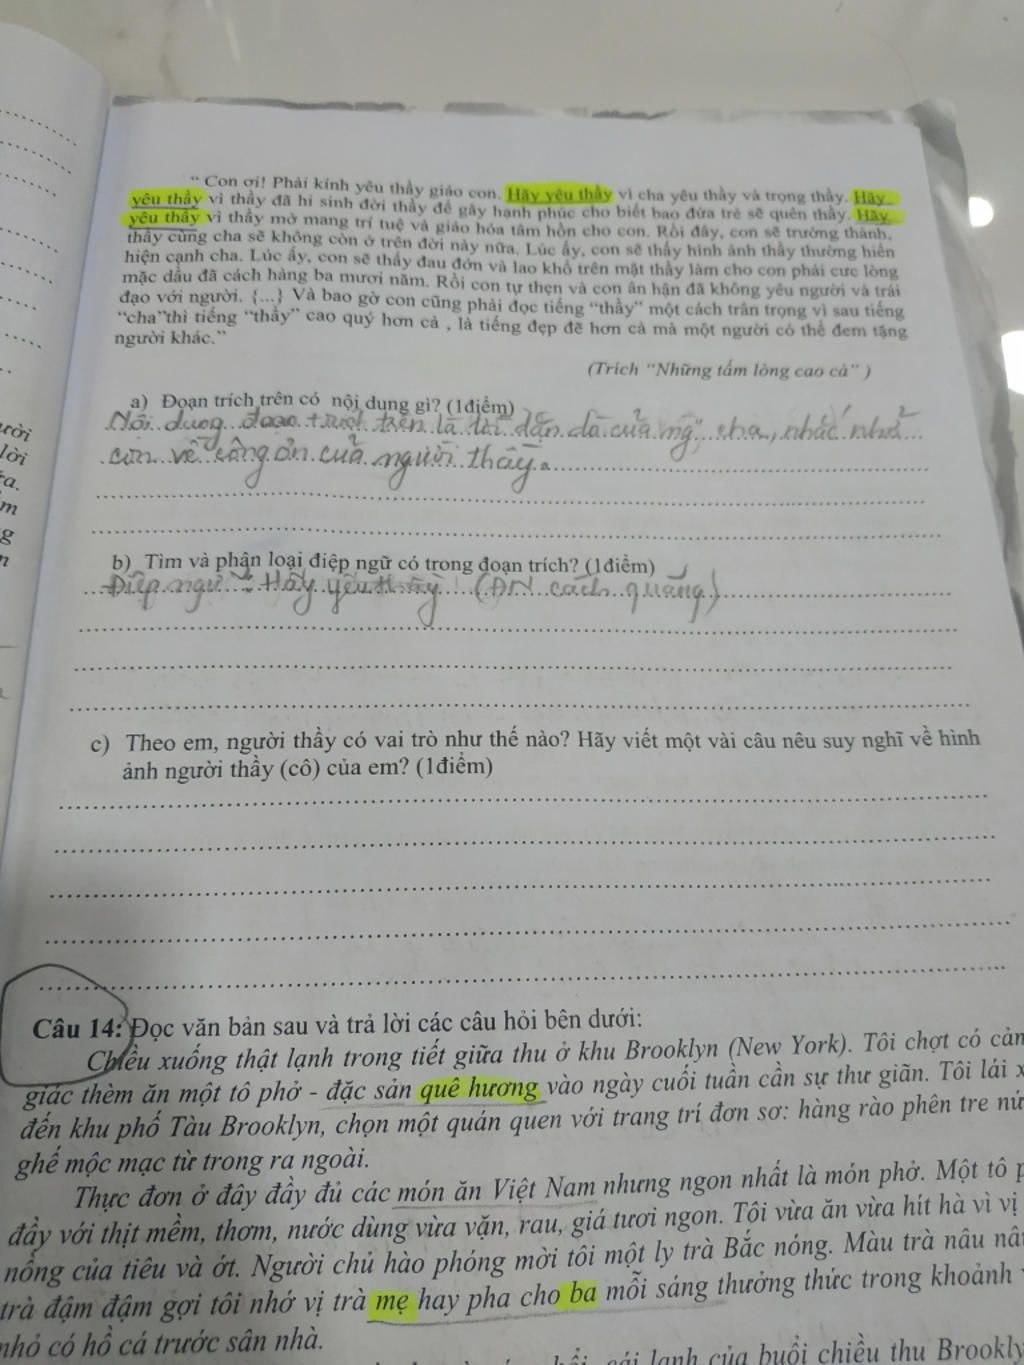 “ Con ơi! Phải kính yêu thầy giáo con. Hãy yêu thầy vì cha yêu thầy và trọng thầy. Hãy
yêu thầy vì thầy đã hi sinh đời thầy để gây hạnh phúc cho biết bao đứa trẻ sẽ quên thầy. Hãy
yêu thầy vì thầy mở mang trí tuệ và giáo hóa tâm hồn cho con. Rồi đây, con sẽ trưởng thành,
thầy cùng cha sẽ không còn ở trên đời này nữa. Lúc ấy, con sẽ thấy hình ảnh thầy thường hiển
hiện cạnh cha. Lúc ấy, con sẽ thấy đau đớn và lao khổ trên mặt thầy làm cho con phải cực lòng
mặc dầu đã cách hàng ba mươi năm. Rồi con tự thẹn và con ân hận đã không yêu người và trái
đạo với người. {...} Và bao giờ con cũng phải đọc tiếng “thầy” một cách trân trọng vì sau tiếng
“cha”thì tiếng “thầy” cao quý hơn cả , là tiếng đẹp đẽ hơn cả mà một người có thể đem tặng
người khác.”
(Trích “Những tấm lòng cao cả” )
a) Đoạn trích trên có nội dung gì? (1điểm)
Nội dung đoạn trích trên là lời dặn dò của ng` cha, nhắc nhở
con về công ơn của người thầy.
b) Tìm và phân loại điệp ngữ có trong đoạn trích? (1điểm)
Điệp ngữ: Hãy yêu thầy! (ĐN cách quãng)
c) Theo em, người thầy có vai trò như thế nào? Hãy viết một vài câu nêu suy nghĩ về hình
ảnh người thầy (cô) của em? (1điểm)
Câu 14: Đọc văn bản sau và trả lời các câu hỏi bên dưới:
Chiều xuống thật lạnh trong tiết giữa thu ở khu Brooklyn (New York). Tôi chợt có cảm
giác thèm ăn một tô phở - đặc sản quê hương vào ngày cuối tuần cần sự thư giãn. Tôi lái
đến khu phố Tàu Brooklyn, chọn một quán quen với trang trí đơn sơ: hàng rào phên tre nứ
ghế mộc mạc từ trong ra ngoài.
Thực đơn ở đây đầy đủ các món ăn Việt Nam nhưng ngon nhất là món phở. Một tô
đầy với thịt mềm, thơm, nước dùng vừa vặn, rau, giá tươi ngon. Tôi vừa ăn vừa hít hà vì vị
nồng của tiêu và ớt. Người chủ hào phóng mời tôi một ly trà Bắc nóng. Màu trà nâu
trà đậm đậm gợi tôi nhớ vị trà mẹ hay pha cho ba mỗi sáng thưởng thức trong khoảnh
nhỏ có hồ cá trước sân nhà.
cái lạnh của buổi chiều thu Brookly
ười
lời
ra.
m
g
n